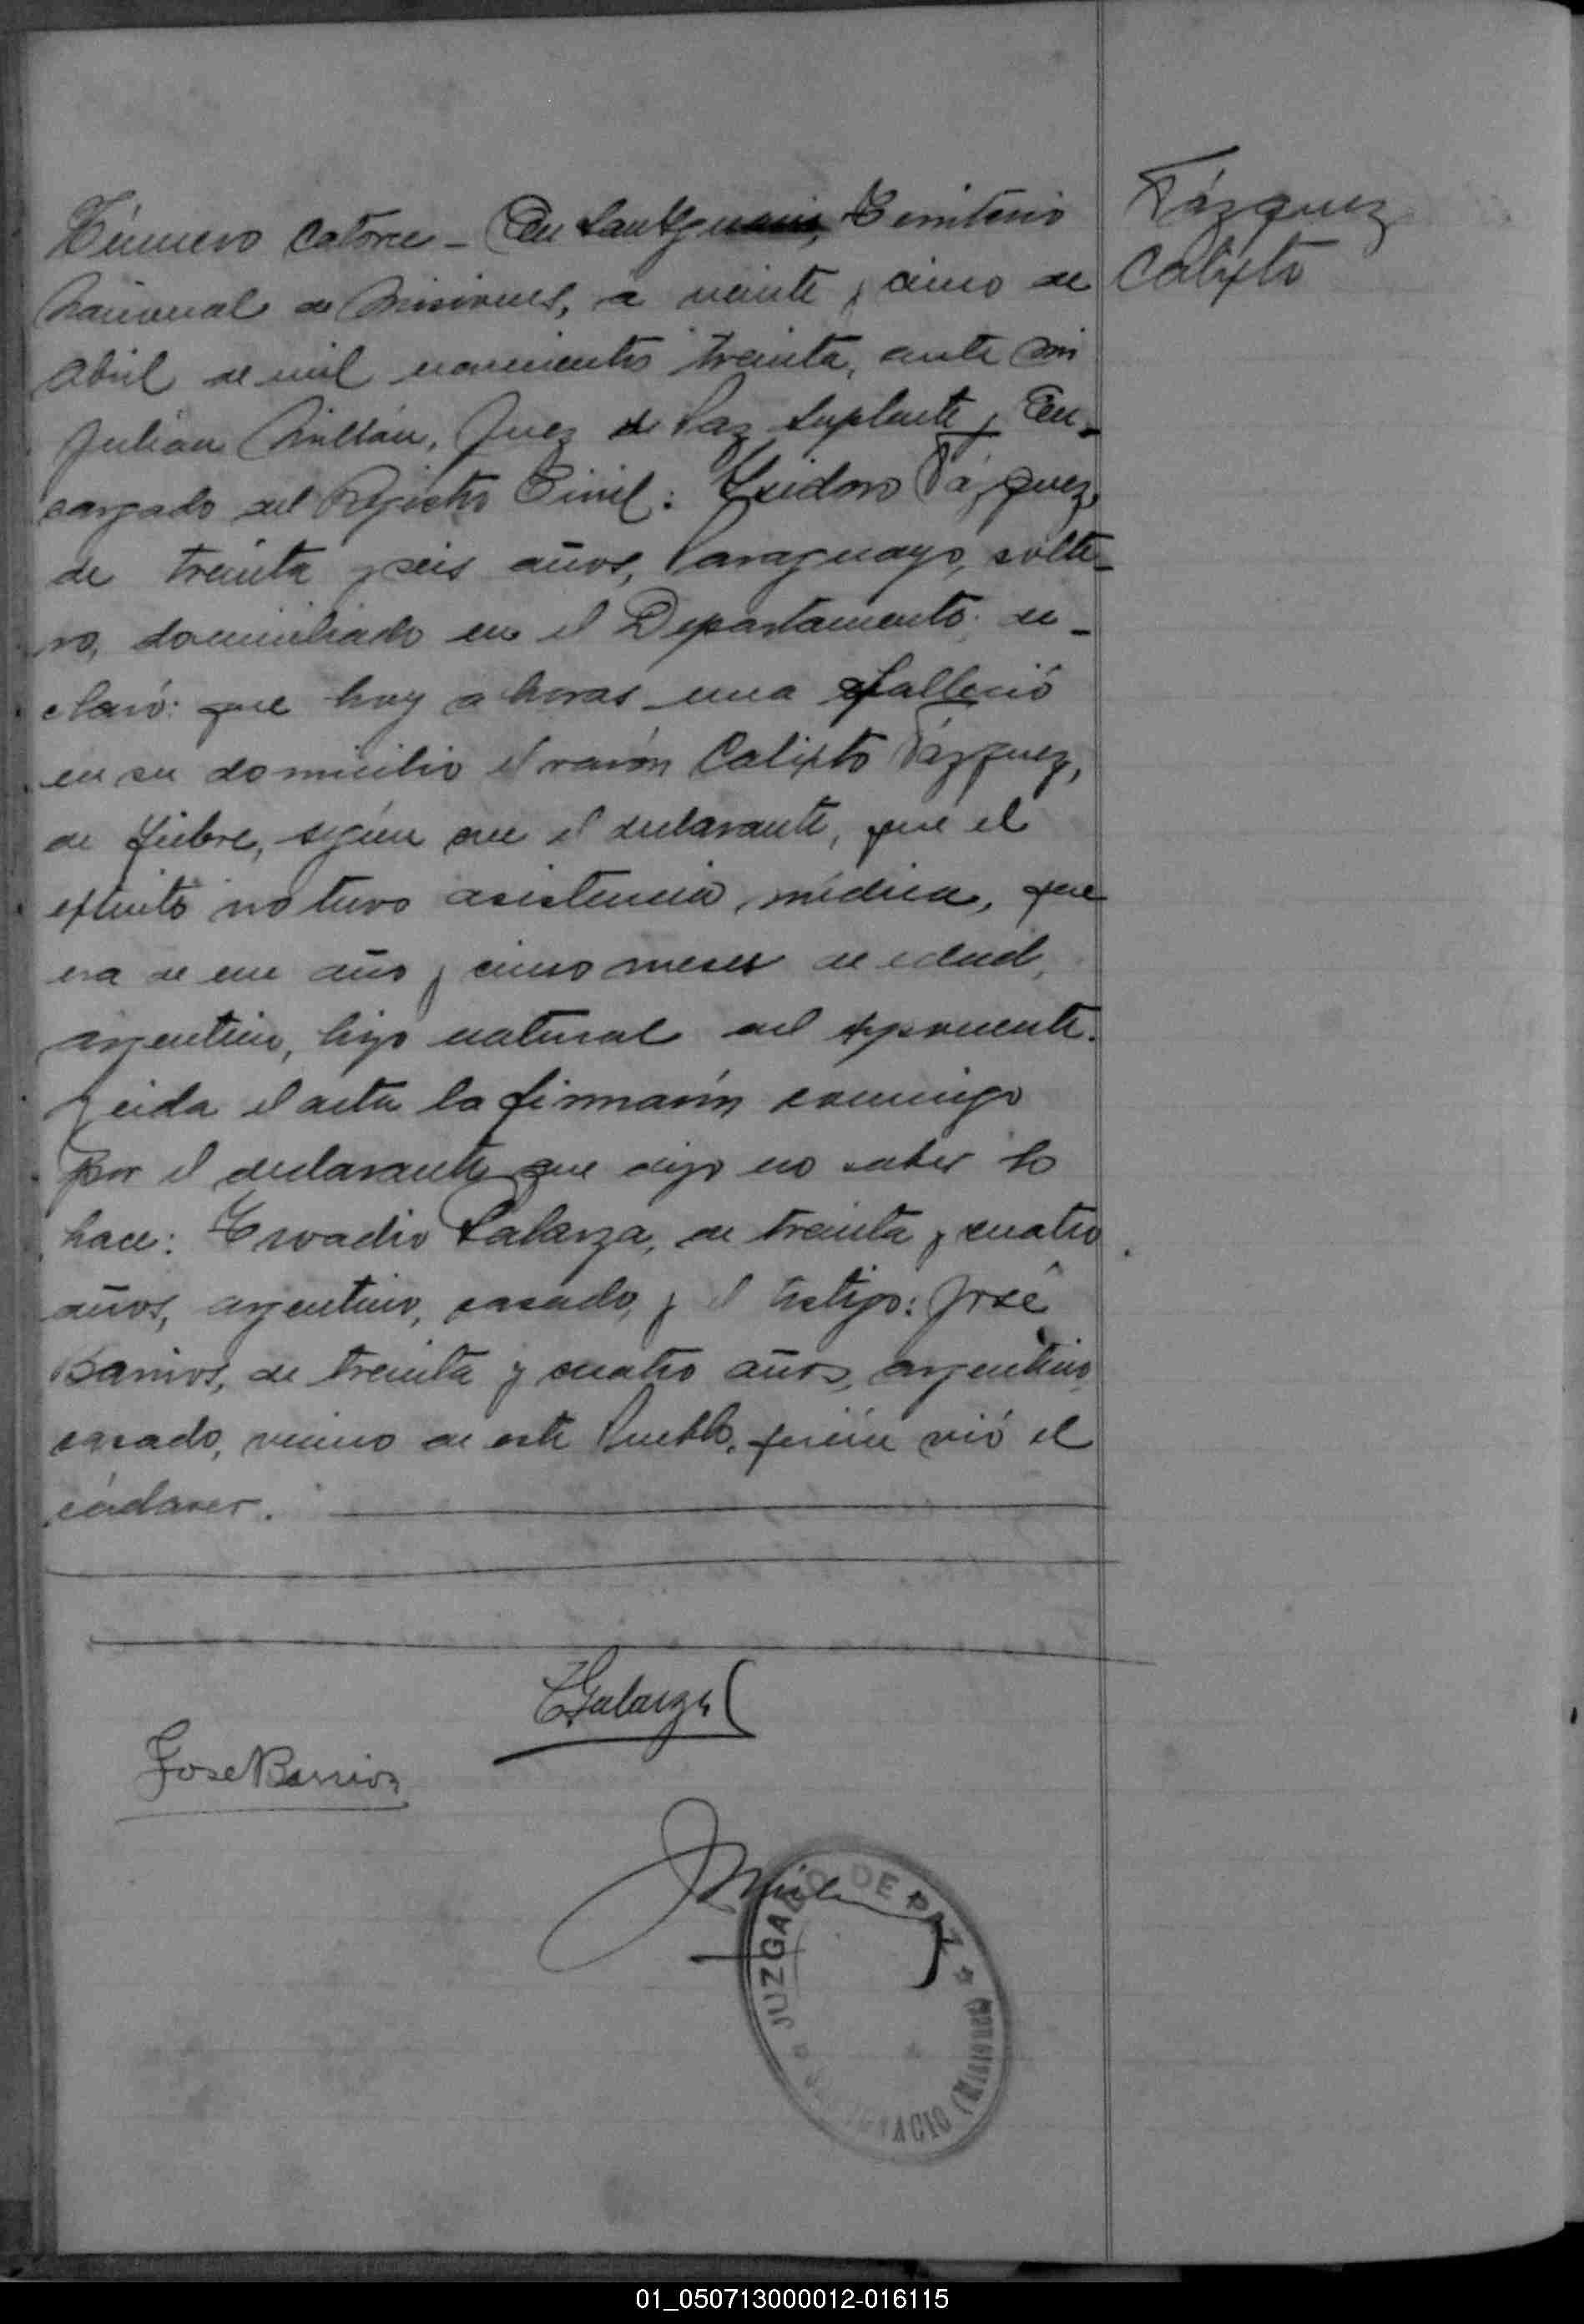 Número catorce - En San Ignacio, Territorio
Nacional de Misiones, a veinte y cinco de
Abril de mil novecientos treinta, ante mi
Julián Millán, Juez de Paz Suplente y En-
cargado del Registro Civil: Isidoro Vázquez,
de treinta y seis años, Paraguayo, solte-
ro, domiciliado en el Departamento, de-
claró: que hoy a horas una falleció
en su domicilio el varón Calixto Vázquez,
de fiebre, según cree el declarante, que el
extinto no tuvo asistencia médica, que
era de un año y cinco meses de edad,
argentino, hijo natural del exponente.
Leida el acta la firmarón conmigo
por el declarante que dijo no saber lo
hace: Galarza, de treinta y cuatro
años, argentino, casado, y el testigo: José
Barrios, de treinta y cuatro años, argentino
casado, vecino de este Pueblo, quién vió el
cádaver.
Vázquez
Calixto
Galarza
Jose Barrios
JUZGADO DE PAZ
IGNACIO (Misiones)
01_050713000012-016115